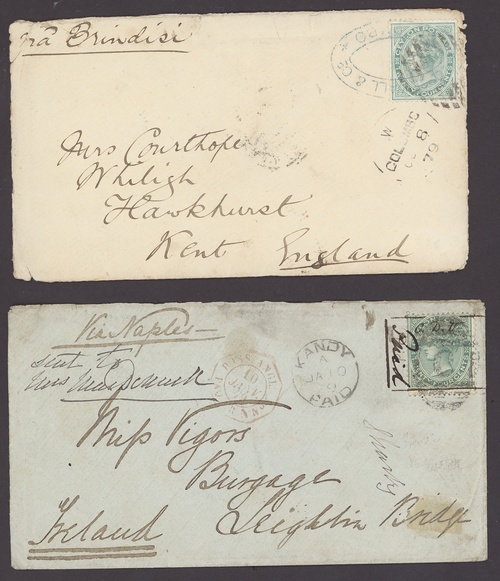 via Brindisi
LL & CO
CEYLON POSTAGE
W
COLOMBO
8
79
Mrs Courthope
Whiligh
Hawkhurst
Kent England
Via Naples
sent to
Mrs
KANDY
JA 10
PAID
Paid
Miss Vigors
Burgage
Leighlin Bridge
Ireland